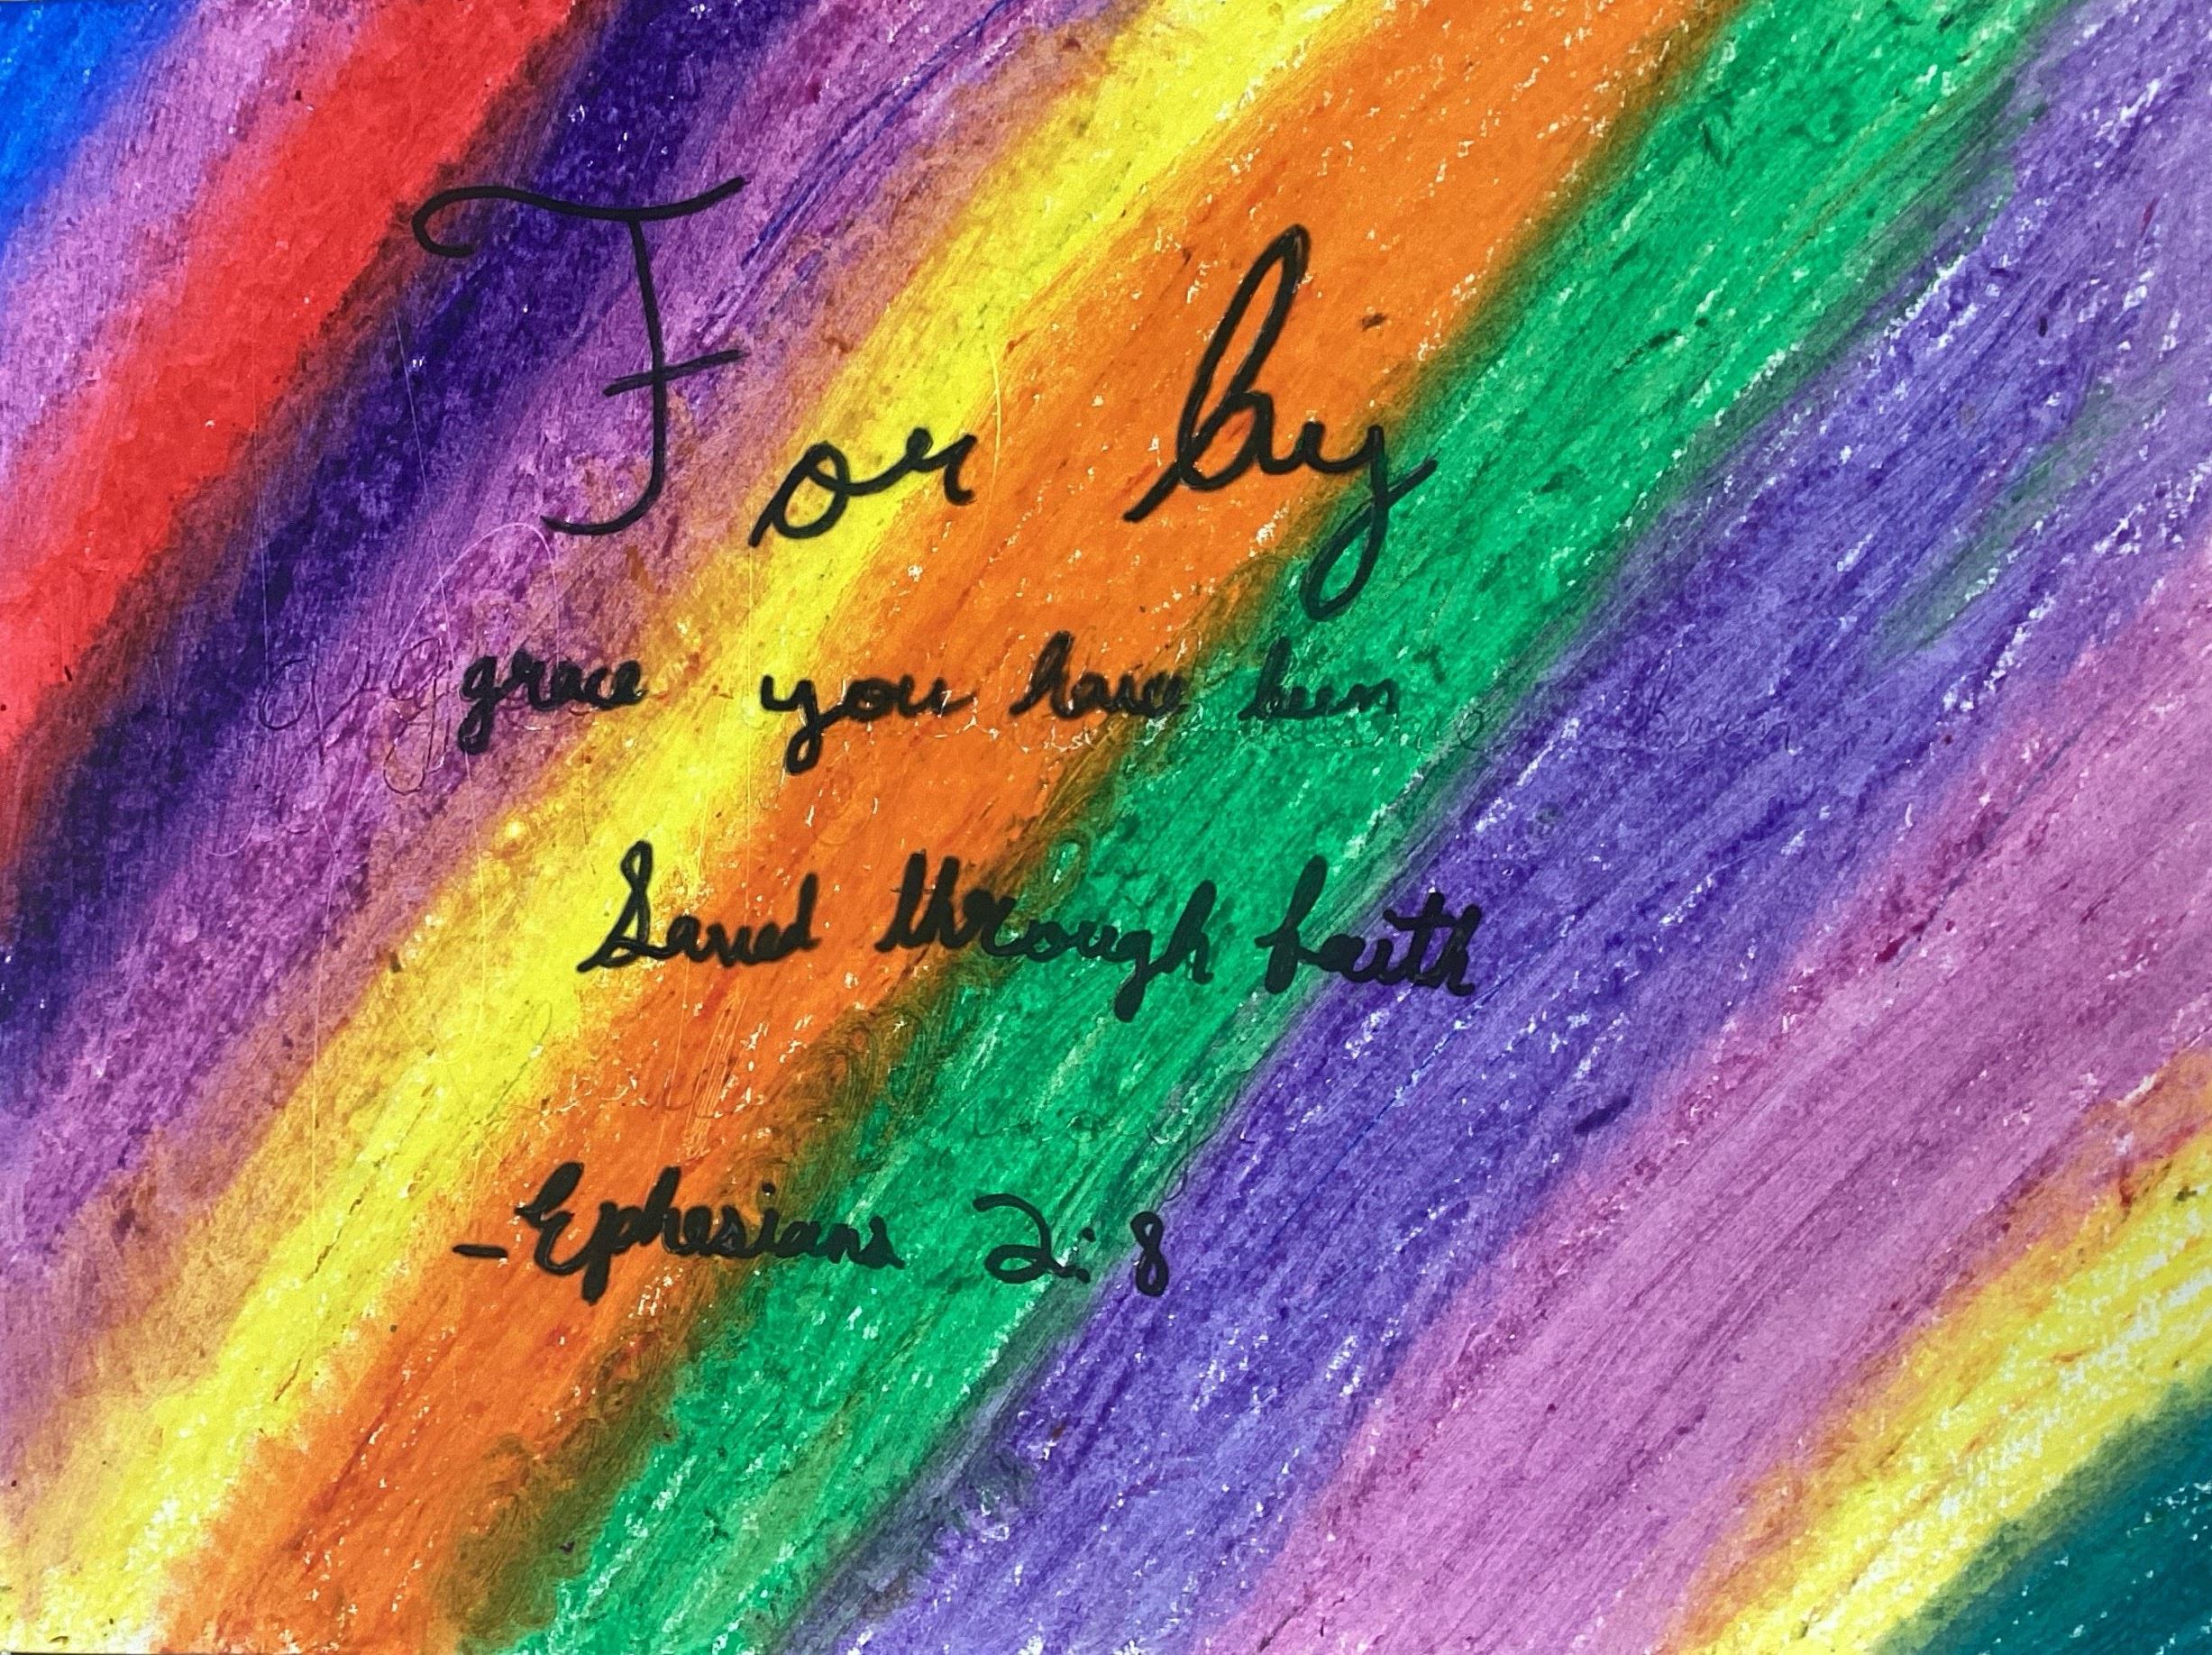 For by
grace you have been
Saved through faith
- Ephesians 2:8